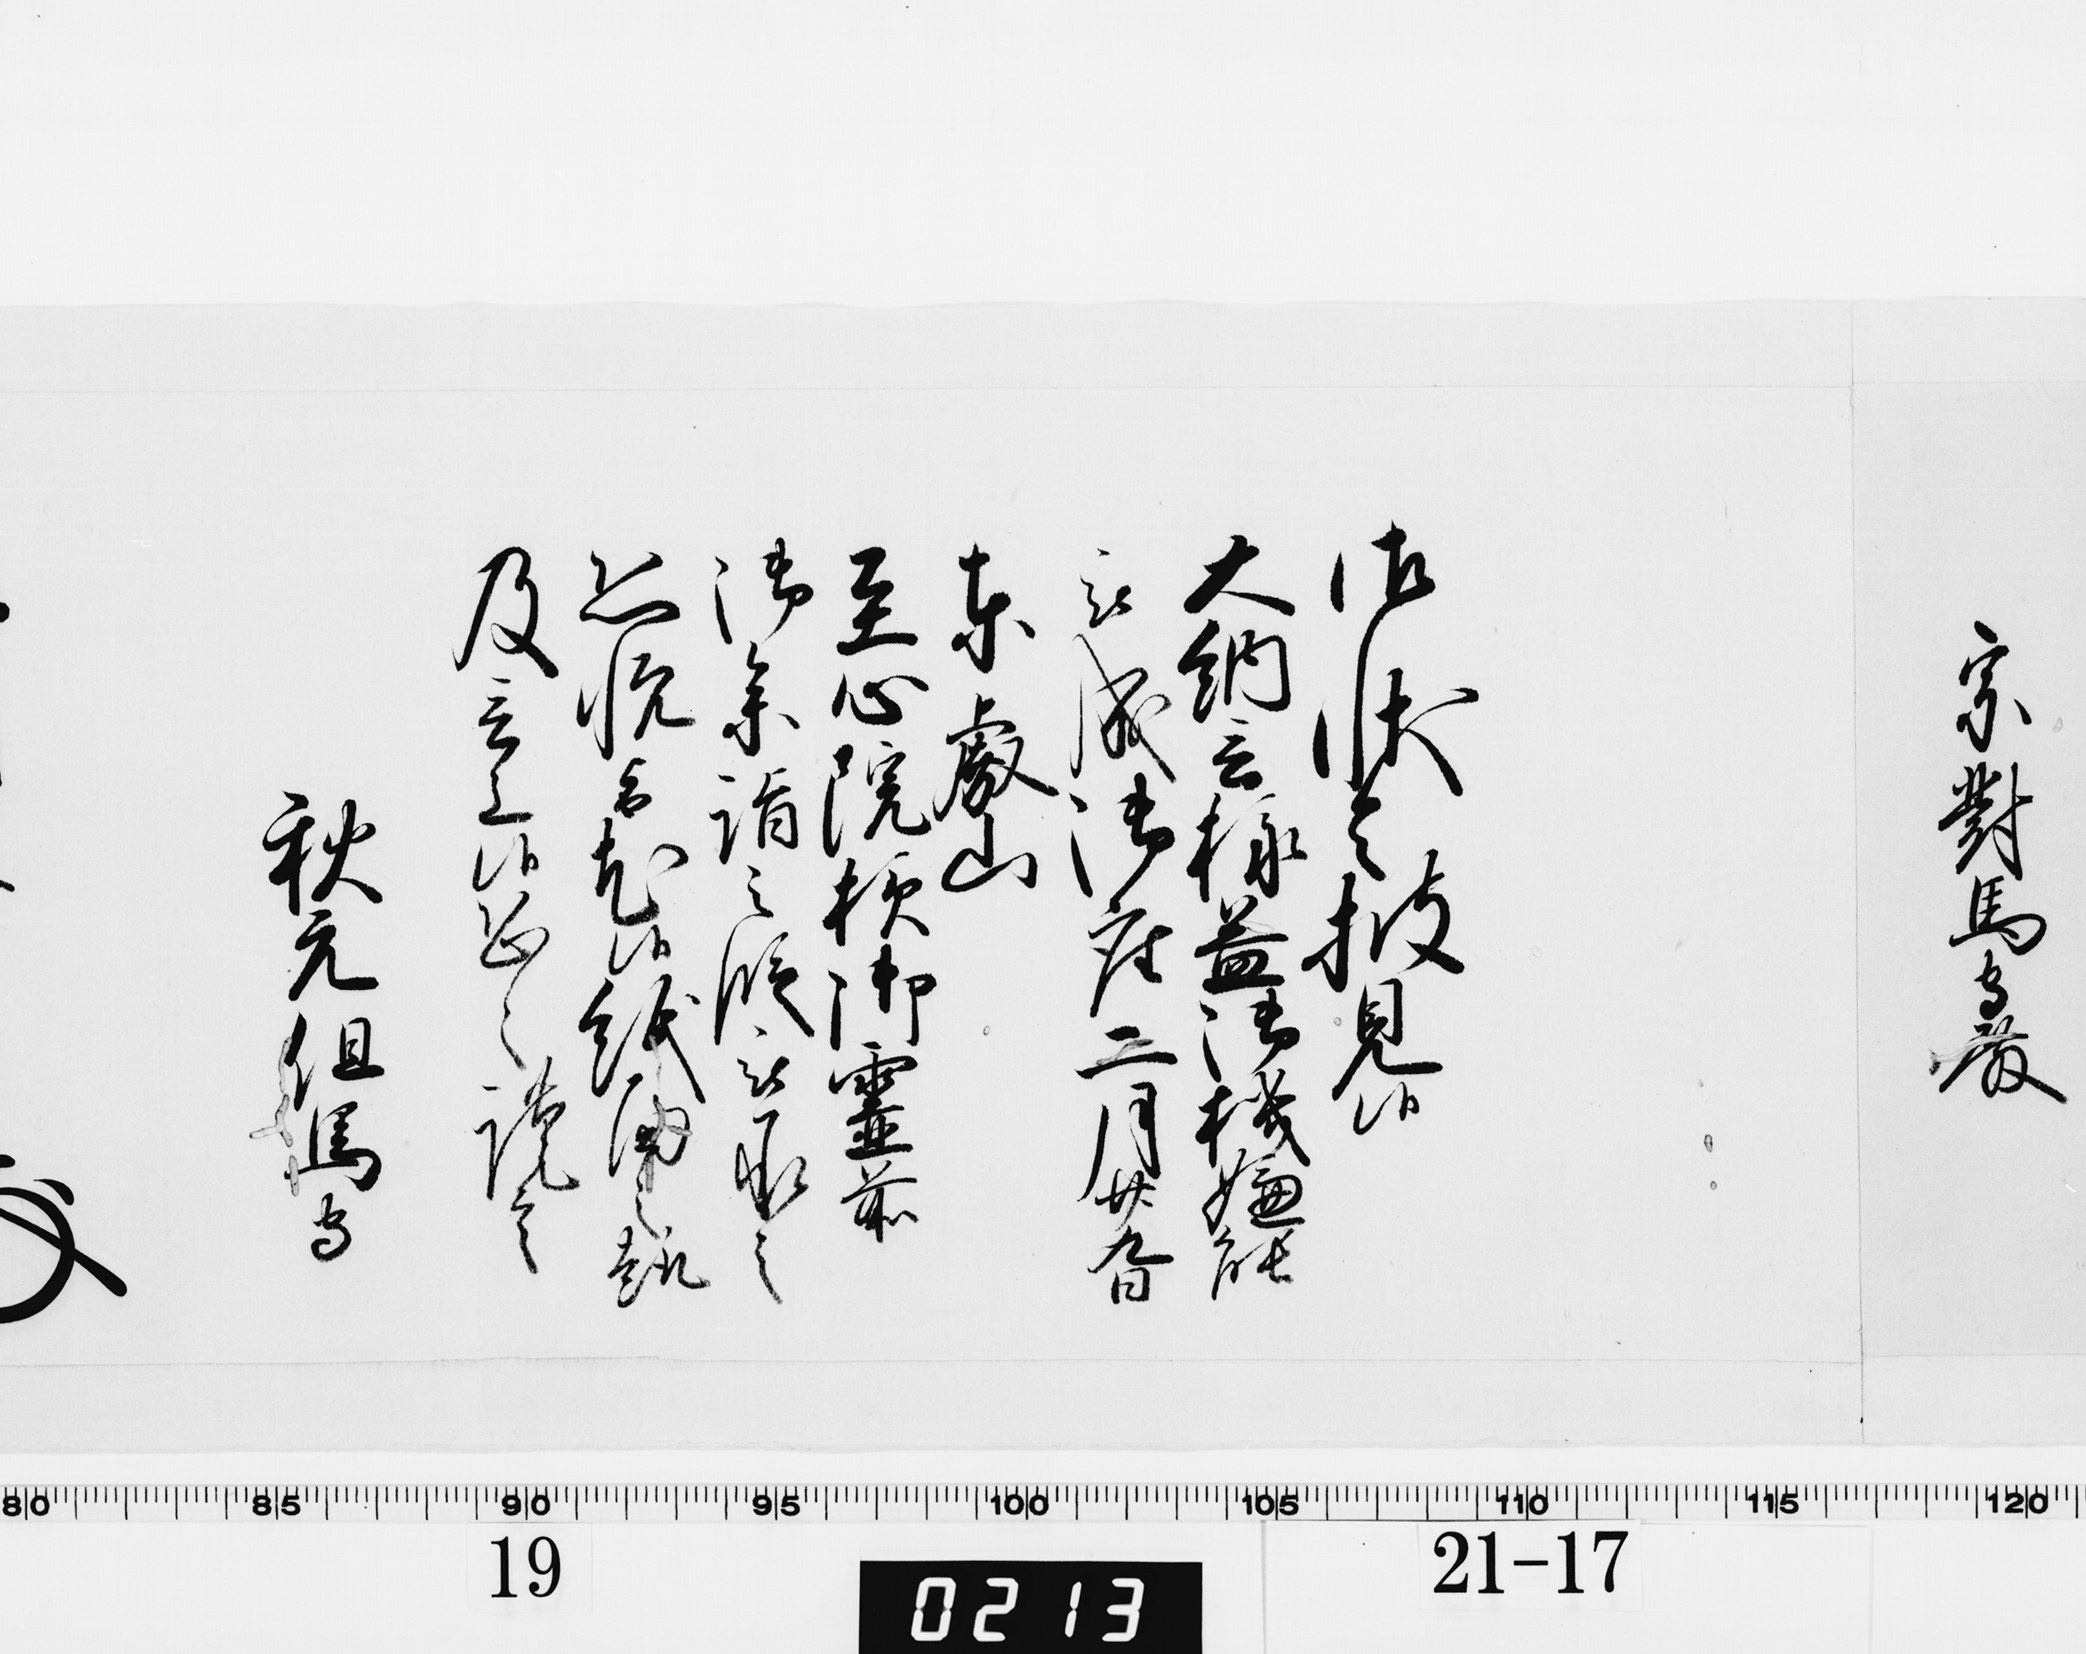 宗對馬守殿
御状令披見候
大納言様益御機嫌能
被成御座二月廿九日
東叡山
至心院様御霊前
御参詣之段被承之
恐悦旨尤候紙面之趣
及言上候恐々謹言
秋元但馬守
80 85 90 95 100 105 110 115 120
19
0213
21-17